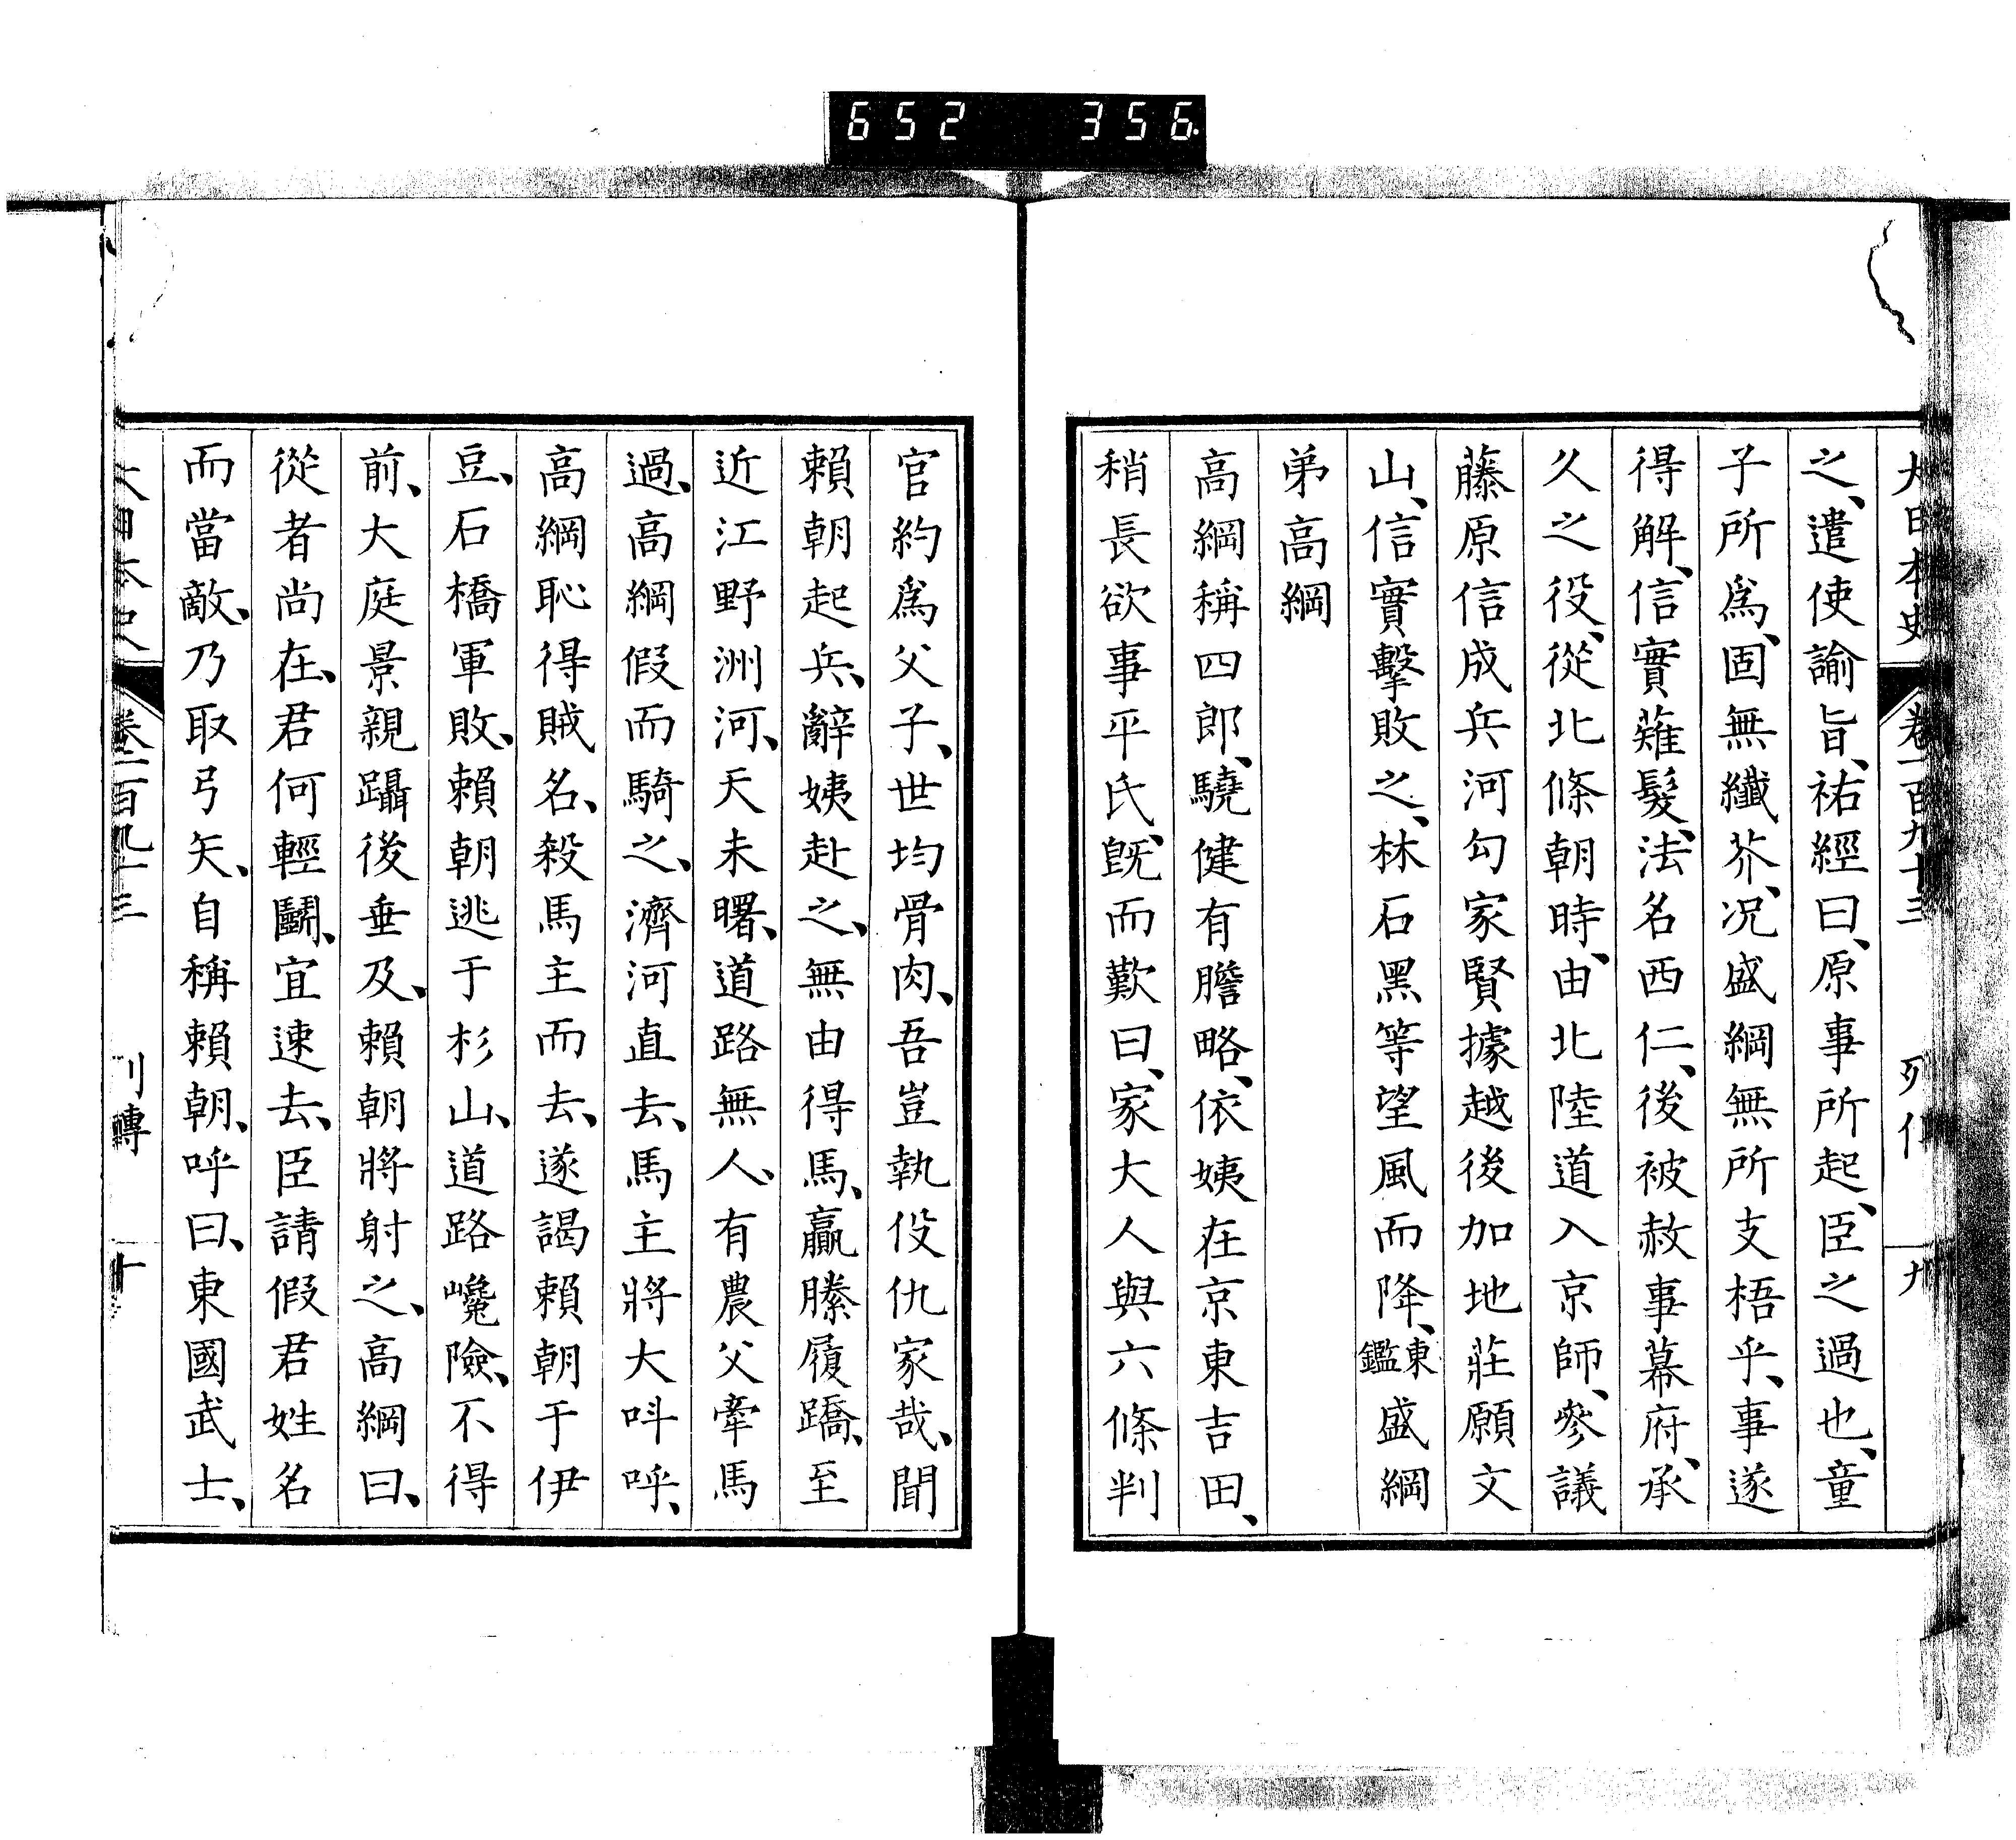 652 356
大日本史 卷一百九十三 列傳 九
之、遣使諭旨、祐經曰、原事所起、臣之過也、童
子所爲、固無纖芥、况盛綱無所支梧乎、事遂
得解、信實薙髮、法名西仁、後被赦事幕府、承
久之役、從北條朝時、由北陸道入京師、參議
藤原信成兵河勾家賢據越後加地莊願文
山、信實擊敗之、林石黑等望風而降、東鑑盛綱
弟高綱
高綱稱四郎、驍健有膽略、依姨在京東吉田、
稍長欲事平氏、既而歎曰、家大人與六條判
官約爲父子、世均骨肉、吾豈執役仇家哉、聞
賴朝起兵、辭姨赴之、無由得馬、贏縢履蹻、至
近江野洲河、天未曙、道路無人、有農父牽馬
過、高綱假而騎之、濟河直去、馬主將大呌呼、
高綱恥得賊名、殺馬主而去、遂謁賴朝于伊
豆、石橋軍敗、賴朝逃于杉山、道路巉險、不得
前、大庭景親躡後垂及、賴朝將射之、高綱曰、
從者尚在、君何輕鬭、宜速去、臣請假君姓名
而當敵、乃取弓矢、自稱賴朝、呼曰、東國武士、
大日本史 卷一百九十三 列傳 十